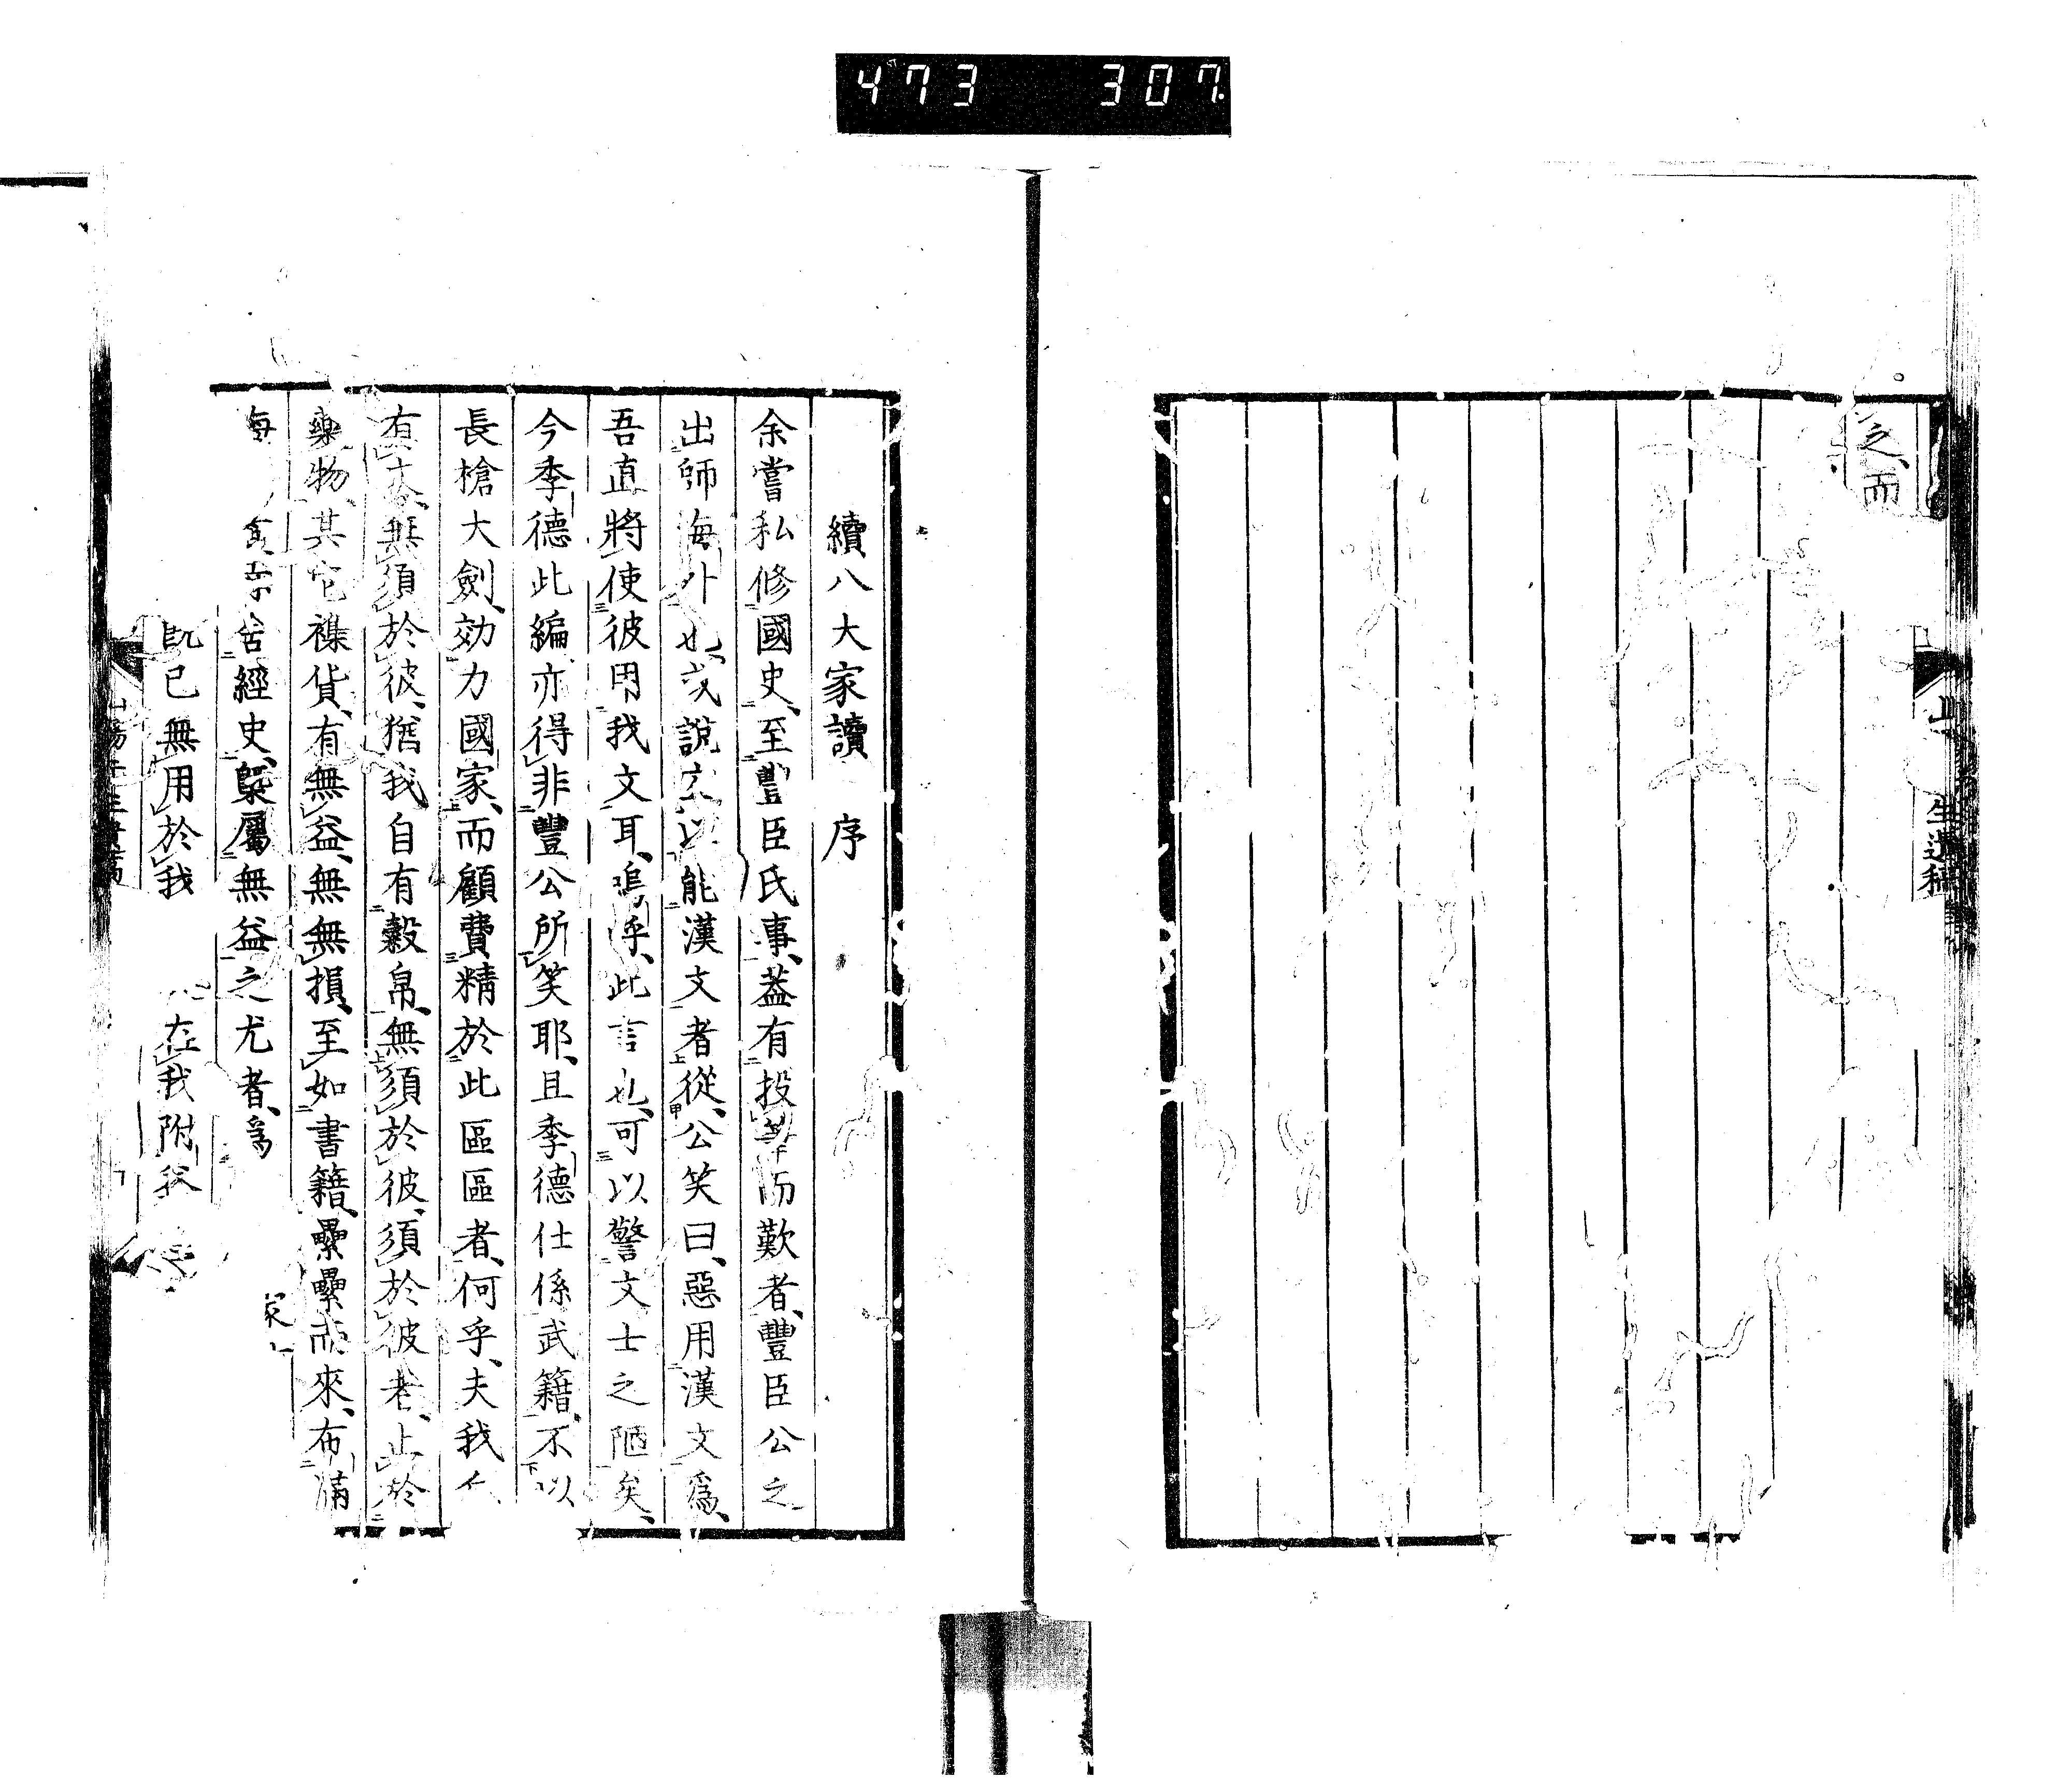 473 307
之、而
生遺稿
續八大家讀 序
余嘗私修國史、至豐臣氏事、蓋有投 而歎者、豐臣公之
出師海外也、或說 以能漢文者從、公笑曰、惡用漢文爲、
吾直將使彼用我文耳、嗚乎、此言也、可以警文士之陋矣、
今季德此編、亦得非豐公所笑耶、且季德仕係武籍、不以
長槍大劍、効力國家、而顧費精於此區區者、何乎、夫我
有 無須於彼、猶我自有穀帛、無須於彼、須於彼者、止於
藥物、其它襍貨、有無益、無無損、至如書籍、纍纍而來、布滿
海 舍經史、槩屬無益之尤者、爲
既已無用於我 在我附